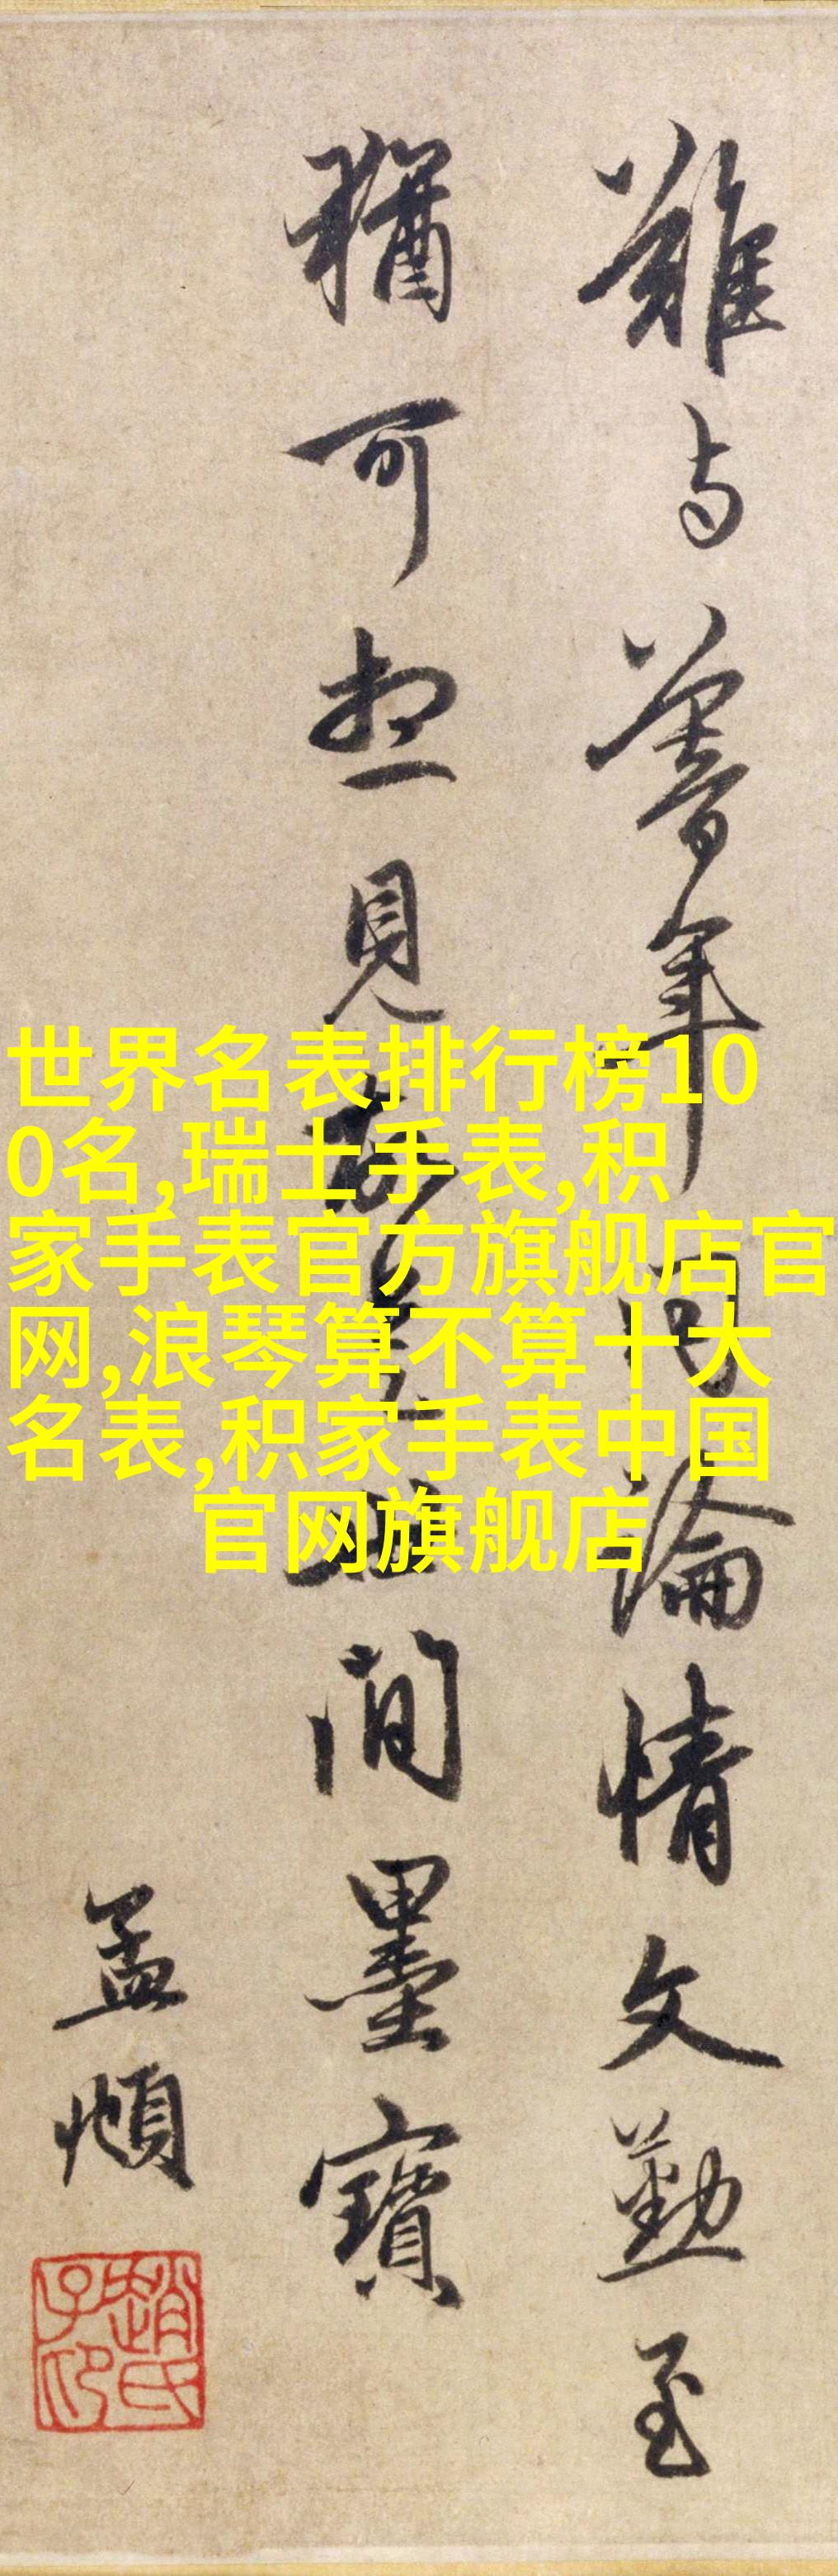 難与年同論情文勤至
猶可想見故是世間墨寶
孟頫
趙氏子昂
世界名表排行榜10
0名,瑞士手表,积
家手表官方旗舰店官
网,浪琴算不算十大
名表,积家手表中国
官网旗舰店